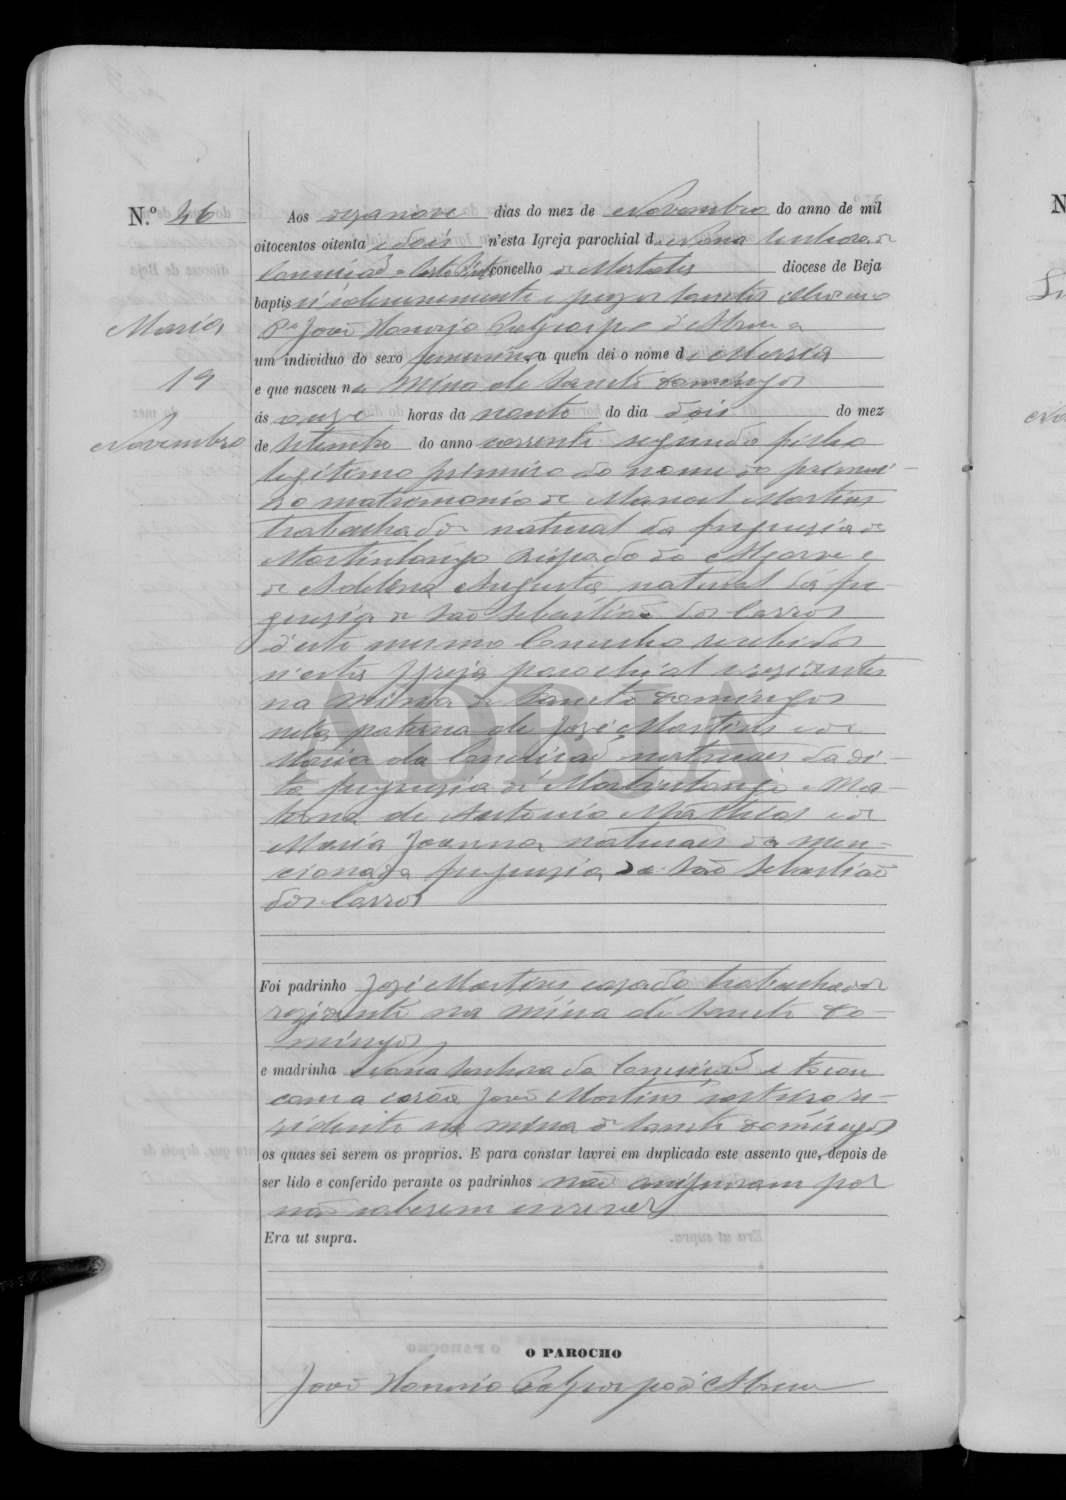 N.º 46
Aos desanove dias do mez de Novembro do anno de mil
oitocentos oitenta e dois n'esta Igreja parochial de Nossa Senhora da
Conceição concelho de Mertola diocese de Beja
baptisei solemnemente e puz os Sanctos
João Honorio d'Abreu
Maria
um individuo do sexo femenino a quem dei o nome de Maria
19
e que nasceu na Mina de Sancto Domingos
ás onze horas da noute do dia dois do mez
Novembro
de Setembro do anno corrente segundo filho
legitimo primeiro do nome do primei-
ro matremonio de Manoel Martins
trabalhador natural da freguesia de
Martinlongo Bispado do Algarve e
de Adelena Augusta natural da fre-
guesia de São Sebastião dos Carros
d'este mesmo Concelho recebidos
n'esta Igreja parochial e residentes
na Mina de Sancto Domingos
neta paterna de José Martins e de
Maria da Conceição naturaes da di-
ta freguesia de Martinlongo e Ma-
terna de Antonio Mathias e de
Maria Joanna naturaes da men-
cionada freguesia de São Sebastião
dos Carros
ADBJA
Foi padrinho José Martins casado trabalhador
residente na Mina de Sancto Do-
mingos
e madrinha Nossa Senhora da Conceição e tocou
com a corôa João Martins solteiro re-
sidente na Mina de Sancto Domingos
os quaes sei serem os proprios. E para constar lavrei em duplicado este assento que, depois de
ser lido e conferido perante os padrinhos não assignaram por
não saberem escrever
Era ut supra.
O PAROCHO
João Honorio d'Abreu